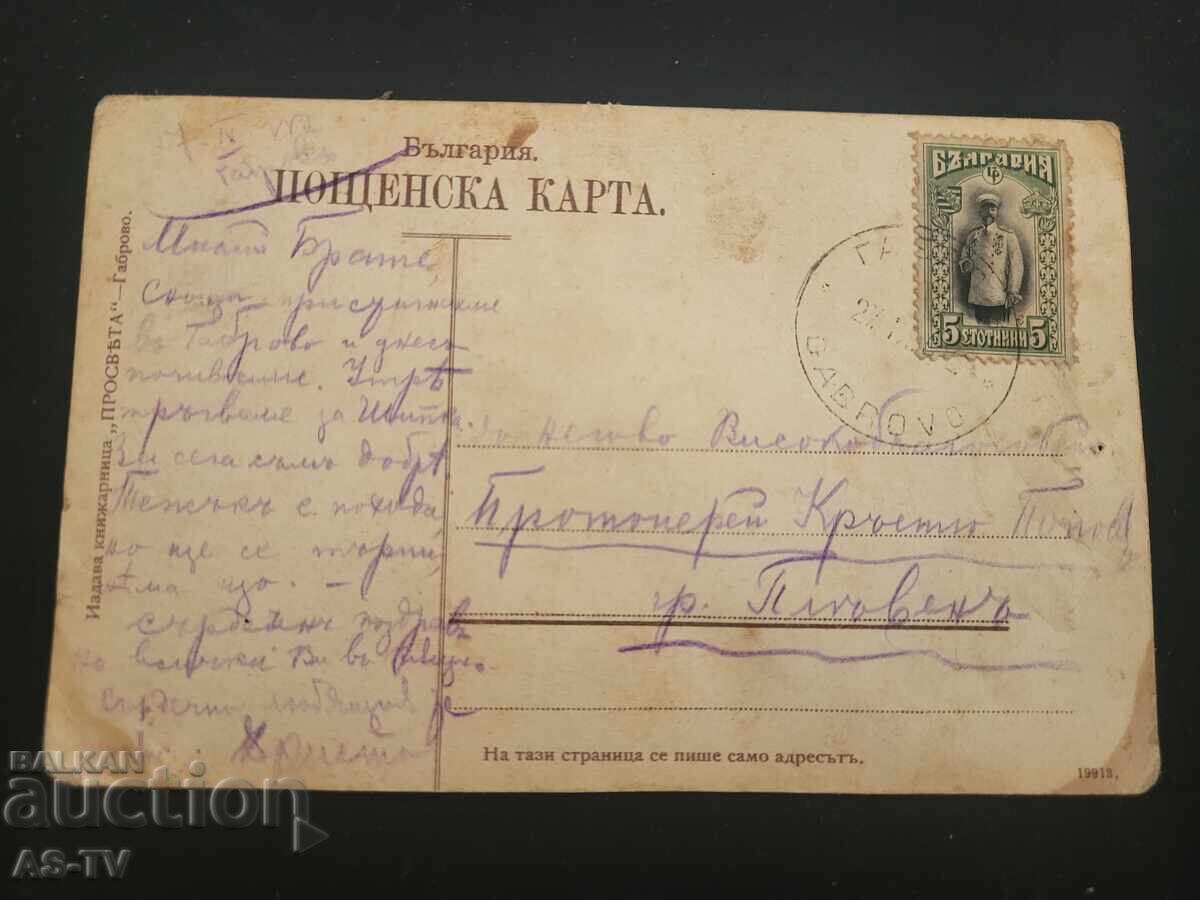 България.
ПОЩЕНСКА КАРТА.
Издава книжарница „ПРОСВѢТА“—Габрово.
Габрово
Мили Брате,
Снощи пристигнахме
въ Габрово и днесъ
почиваме. Утрѣ
тръгваме за Шипка.
До сега съмъ добрѣ
Тежъкъ е похода
но ще се търпи
Сърдеченъ поздравъ
на всички Ви въ
сърдечно любящий
Христо
БЪЛГАРИЯ
5 СТОТИНКИ 5
GABROVO
До Негово
Протоиерей Кръстю Попов
гр. Плѣвенъ
На тази страница се пише само адресътъ.
19913.
BALKAN
auction
AS-TV